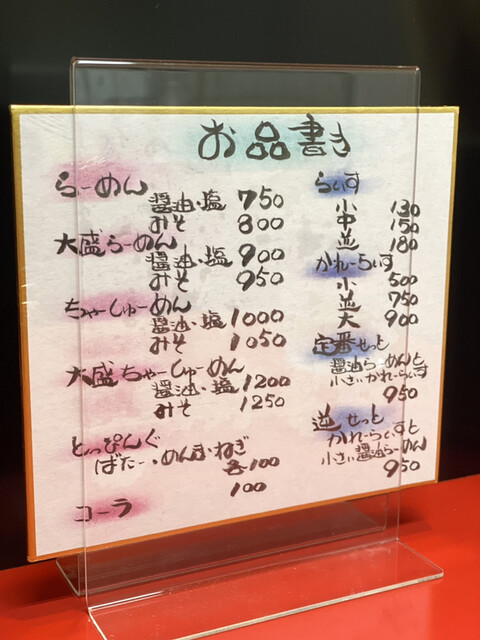 お品書き
らーめん
醤油・塩 750
みそ 800
大盛らーめん
醤油・塩 900
みそ 950
ちゃーしゅーめん
醤油・塩 1000
みそ 1050
大盛ちゃーしゅーめん
醤油・塩 1200
みそ 1250
とっぴんぐ
ばたー・めんま・ねぎ
各100
100
コーラ
らいす
小 130
中 150
並 180
かれーらいす
小 500
並 750
大 900
定番せっと
醤油らーめんと
小さいかれーらいす
950
逆せっと
かれーらいすと
小さい醤油らーめん
950